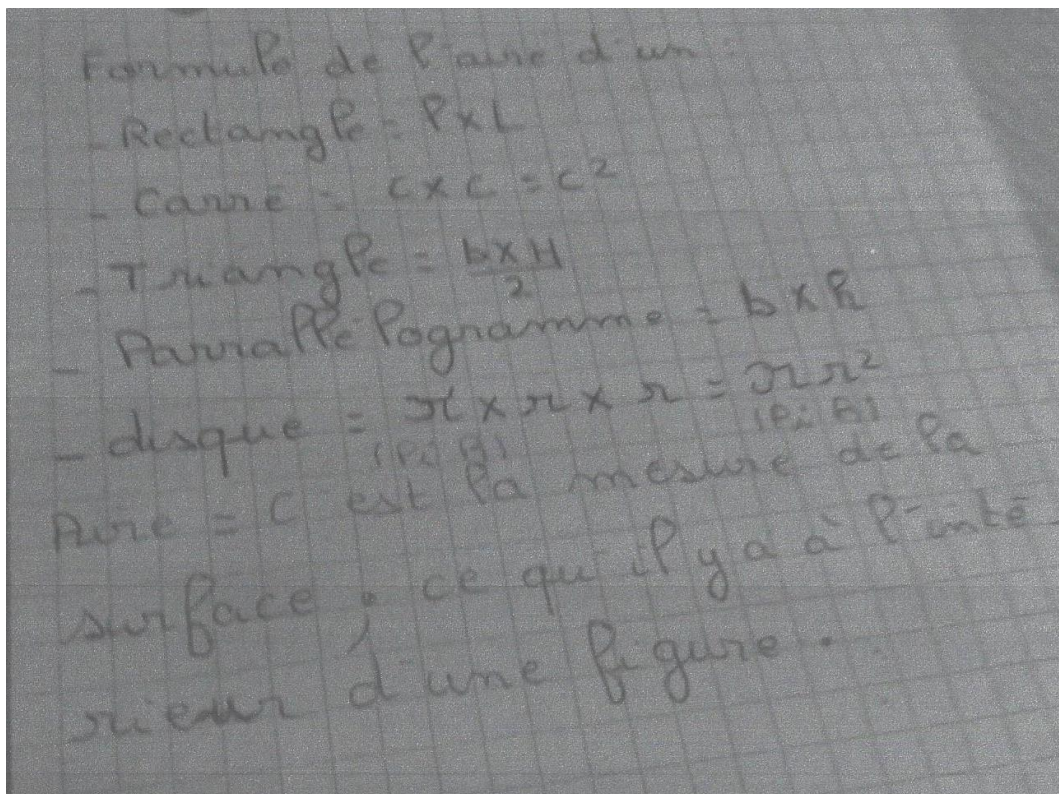 Formule de l'aire d'un :
- Rectangle = l x L
- Carré = c x c = c²
- Triangle = b x H / 2
- Parrallélogramme = b x h
- disque = π x r x r = πr²
(Pi R) (Pi R)
Aire = C est la mesure de la
surface, ce qu'il y a à l'inté
rieur d'une figure.